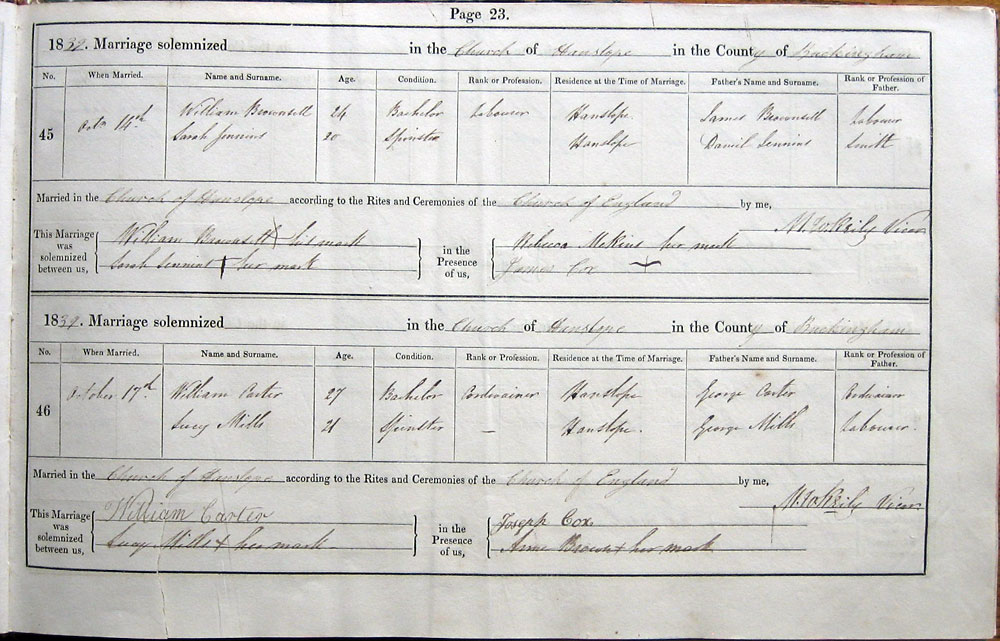 Page 23.
1839. Marriage solemnized in the Church of Hanslope in the County of Buckingham
No. When Married. Name and Surname. Age. Condition. Rank or Profession. Residence at the Time of Marriage. Father's Name and Surname. Rank or Profession of Father.
45 Octr 14th William Brownsell 24 Bachelor Labourer Hanslope James Brownsell Labourer
Sarah Jennins 20 Spinster Hanslope Daniel Jennins Smith
Married in the Church of Hanslope according to the Rites and Ceremonies of the Church of England by me,
Vicar
This Marriage was solemnized between us, William Brownsell his mark in the Presence of us, Rebecca her mark
Sarah Jennins + her mark James Cox
1839. Marriage solemnized in the Church of Hanslope in the County of Buckingham
No. When Married. Name and Surname. Age. Condition. Rank or Profession. Residence at the Time of Marriage. Father's Name and Surname. Rank or Profession of Father.
46 October 17th William Carter 27 Bachelor Cordwainer Hanslope George Carter Cordwainer
Lucy Mills 21 Spinster — Hanslope. George Mills Labourer.
Married in the Church of Hanslope according to the Rites and Ceremonies of the Church of England by me,
Vicar
This Marriage was solemnized between us, William Carter in the Presence of us, Joseph Cox.
Lucy Mills + her mark Anne Brown + her mark